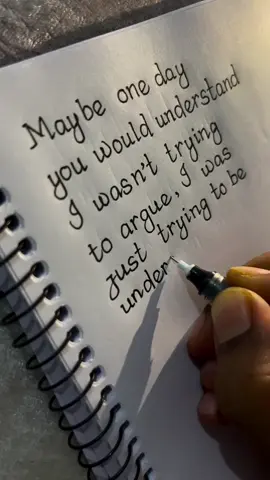 Maybe one day
you would understand
I wasn't trying
to argue, I was
just trying to be
under